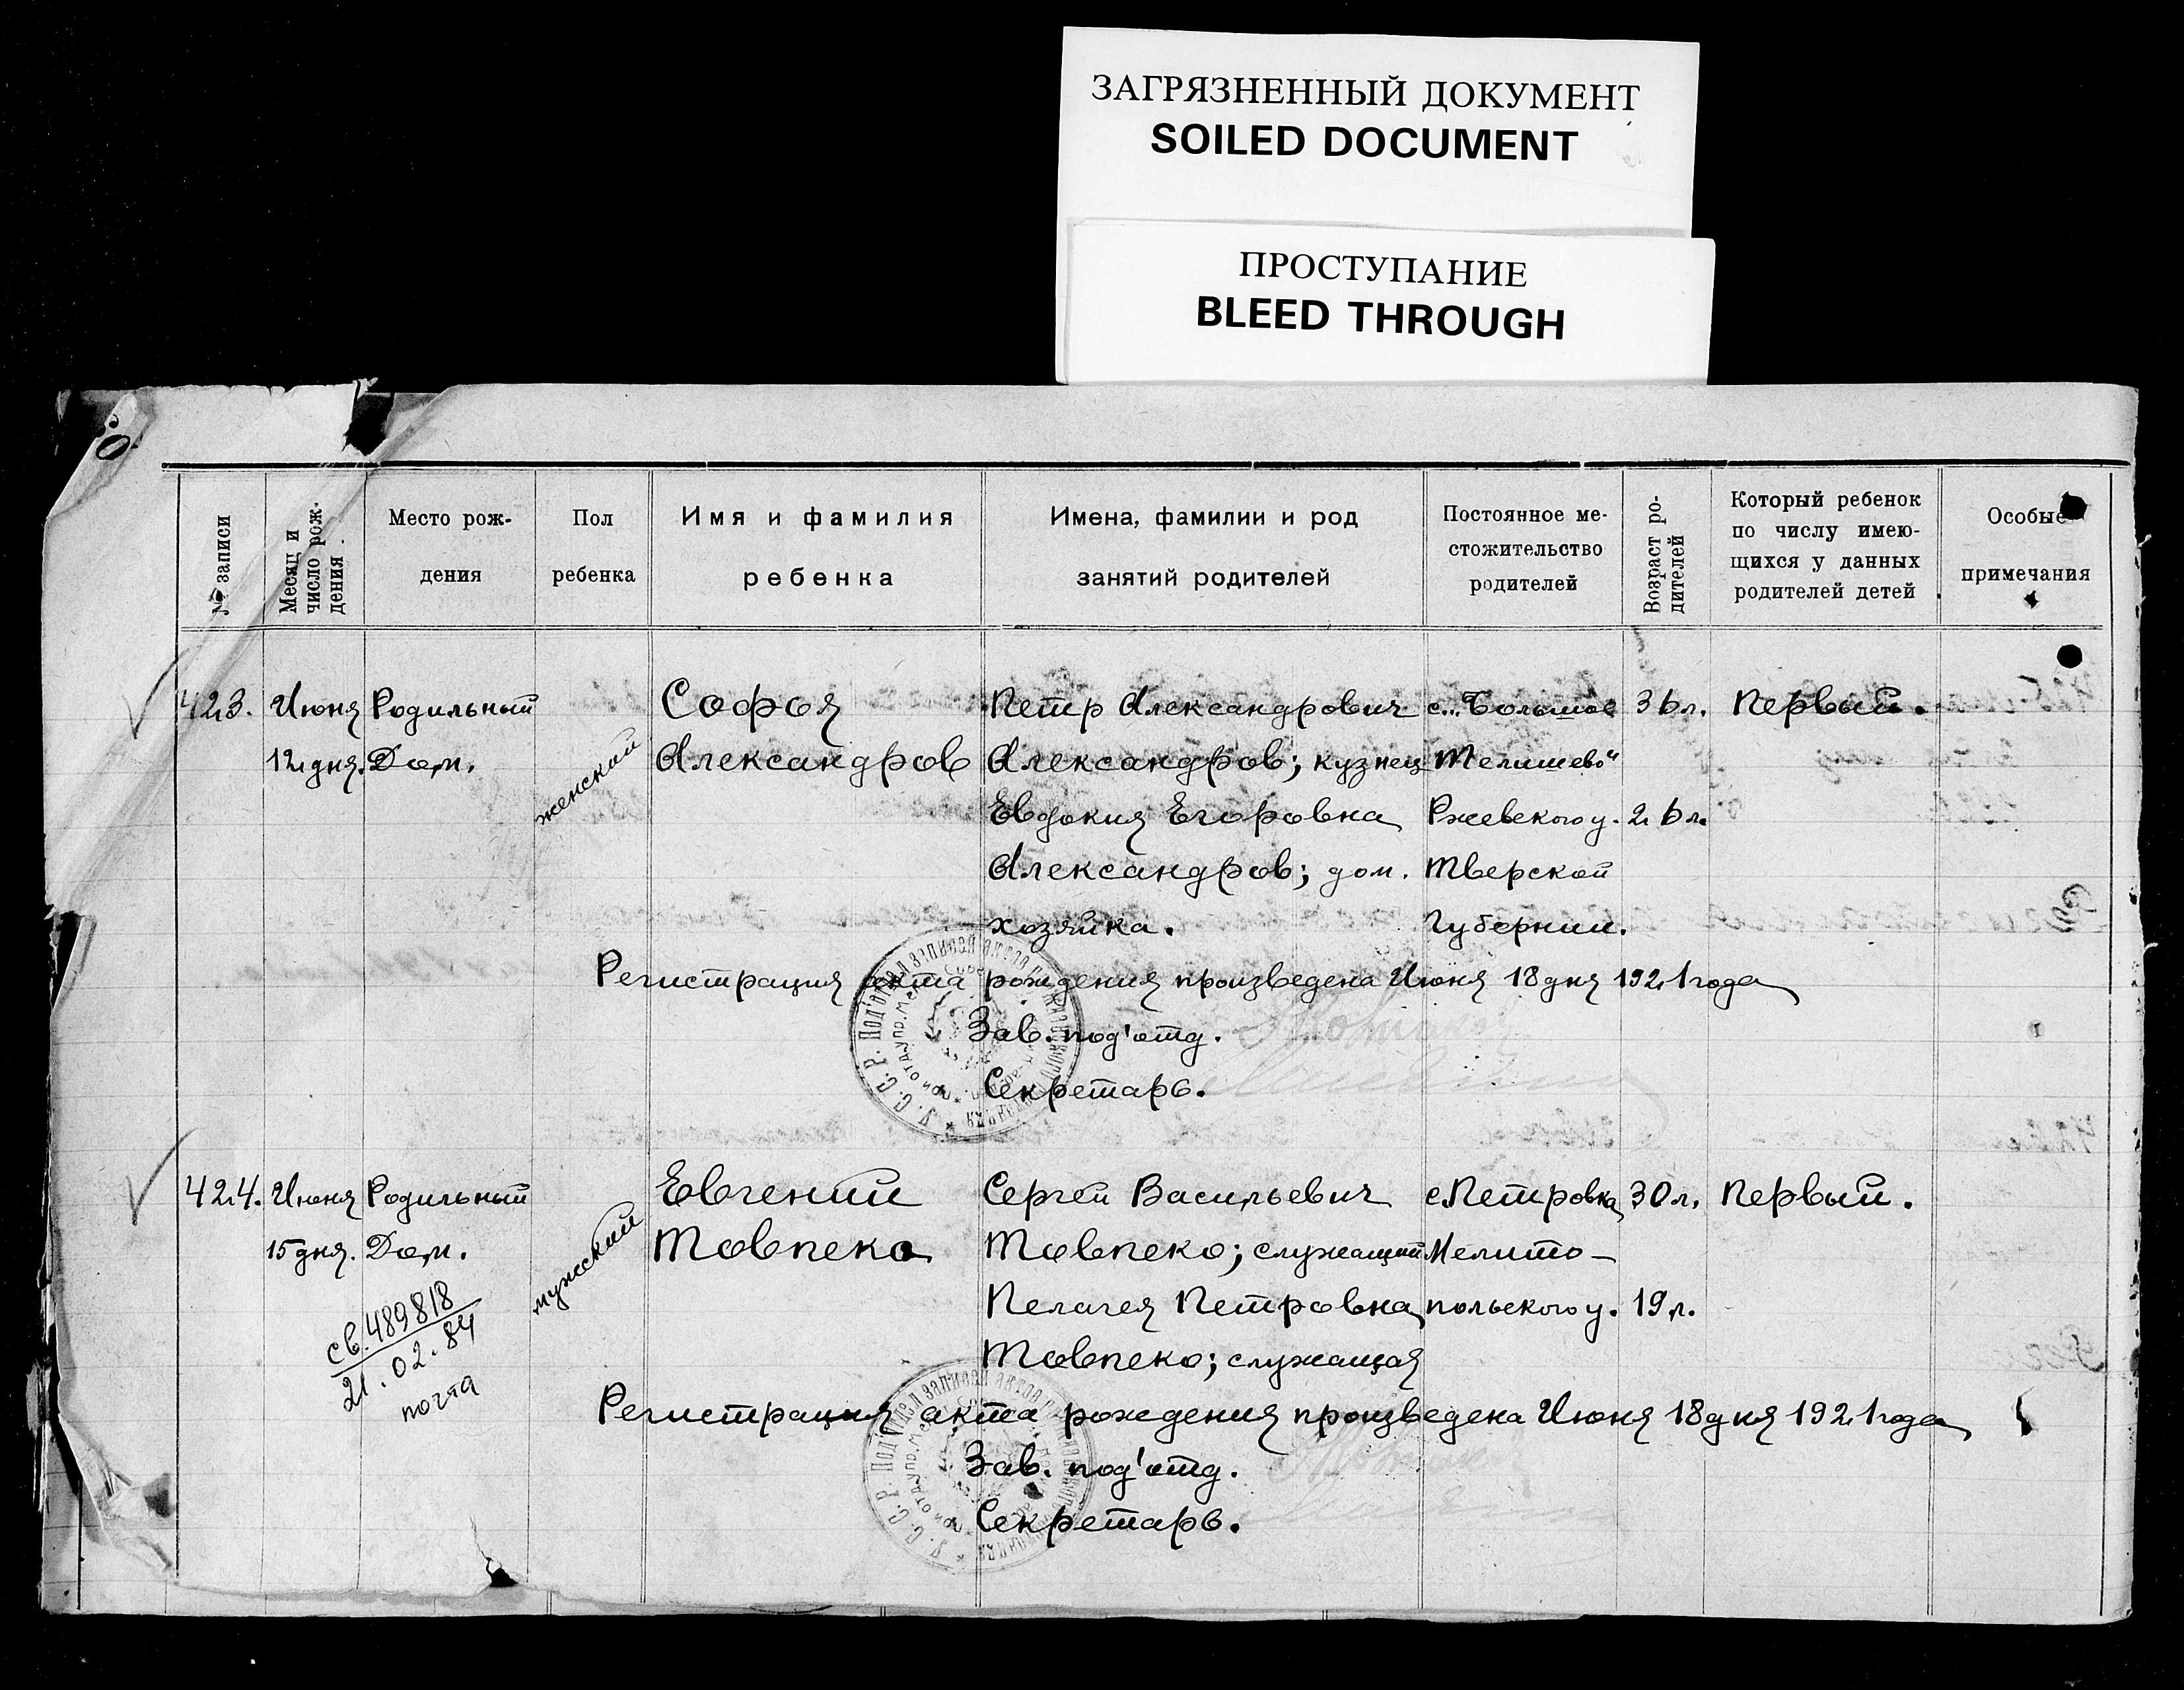 ЗАГРЯЗНЕННЫЙ ДОКУМЕНТ
SOILED DOCUMENT
ПРОСТУПАНИЕ
BLEED THROUGH
№ записи
Месяц и число рождения
Место рож-
дения
Пол
ребенка
Имя и фамилия
ребенка
Имена, фамилии и род
занятий родителей
Постоянное ме-
стожительство
родителей
Возраст ро-
дителей
Который ребенок
по числу имею-
щихся у данных
родителей детей
Особые
примечания
423. Июня Родильный женский Софья Петр Александрович с. „Большое 36 л. Первый.
12 дня. Дом. Александров Александров; кузнец Телишево"
Евдокия Егоровна Ржевского у. 26 л.
Александров; дом. Тверской
хозяйка. Губернии.
Регистрация акта рождения произведена Июня 18 дня 1921 года
Зав. под'отд.
Секретарь.
424. Июня Родильный мужской Евгений Сергей Васильевич с. Петровка 30 л. Первый.
15 дня. Дом. Товпеко Товпеко; служащий Мелито-
Пелагея Петровна польского у. 19 л.
Товпеко; служащая
св. 489818
21.02.84
почта
Регистрация акта рождения произведена Июня 18 дня 1921 года
Зав. под'отд.
Секретарь.